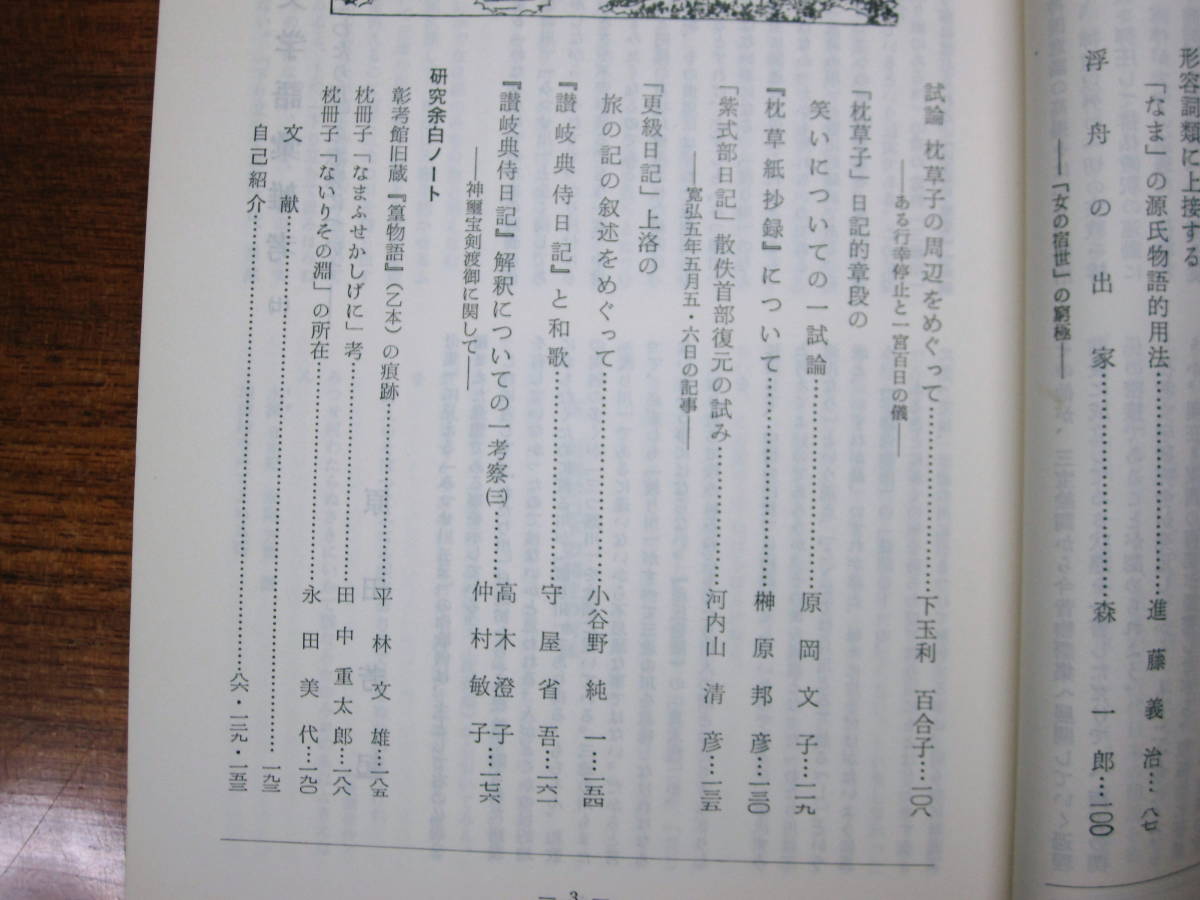 形容詞類に上接する
「なま」の源氏物語的用法……………………進藤義治… 八七
浮舟の出家……………………森一郎…一〇〇
――「女の宿世」の窮極――
試論 枕草子の周辺をめぐって……………………下玉利 百合子…一〇八
――ある行幸停止と一宮百日の儀――
「枕草子」日記的章段の
笑いについての一試論……………………原岡文子…一一九
『枕草紙抄録』について……………………榊原邦彦…一三〇
「紫式部日記」散佚首部復元の試み……………………河内山清彦…一三五
――寛弘五年五月五・六日の記事――
「更級日記」上洛の
旅の記の叙述をめぐって……………………小谷野純一…一五四
『讃岐典侍日記』と和歌……………………守屋省吾…一六一
『讃岐典侍日記』解釈についての一考察㈢…………高木澄子
仲村敏子…一七六
――神璽宝剣渡御に関して――
研究余白ノート
彰考館旧蔵『篁物語』(乙本)の痕跡……………………平林文雄…一八五
枕冊子「なまふせかしげに」考……………………田中重太郎…一八八
枕冊子「ないりその淵」の所在……………………永田美代…一九〇
文献……………………一九三
自己紹介……………………八六・一二九・一五三
― 3 ―